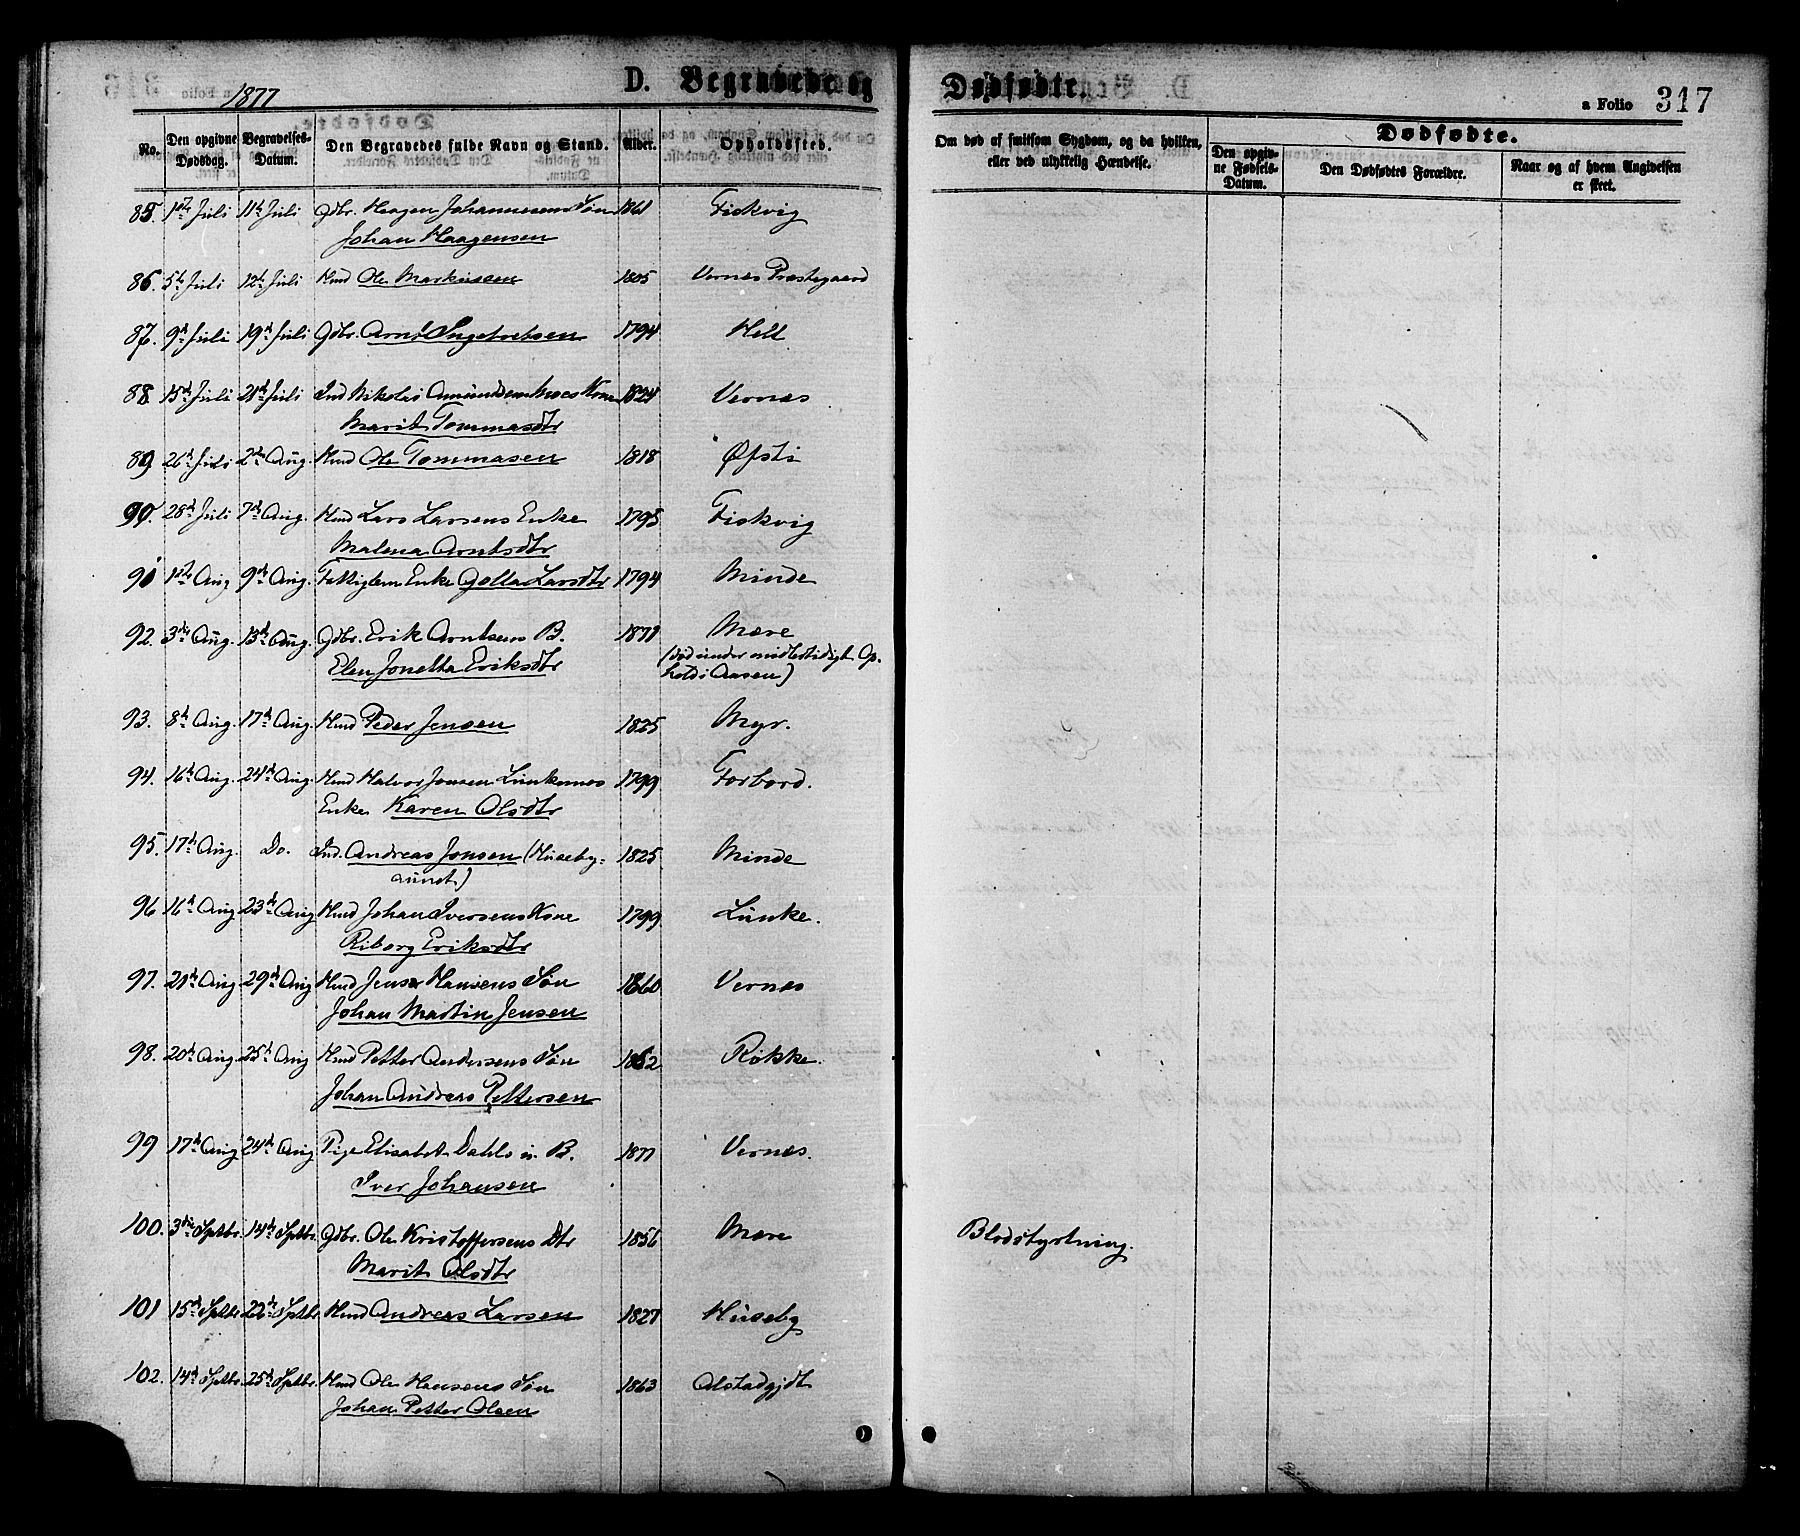 1877
D. Begravede og Dødfødte.
a Folio 317
No.
Den opgivne Dødsdag.
Begravelses-Datum.
Den Begravedes fulde Navn og Stand.
Alder.
Opholdssted.
Om død af smitsom Sygdom, og da hvilken, eller ved ulykkelig Hændelse.
Dødfødte.
Den opgivne Fødsels-Datum.
Den Dødfødtes Forældre.
Naar og af hvem Angivelsen er skeet.
85 1ste Juli 11te Juli Gdbr. Haagen Johannesens Søn 1861 Fiskvig
Johan Haagensen
86. 5te Juli 12te Juli Hmd Ole Markussen 1805 Vernes Præstegaard
87. 9de Juli 19de Juli Gdbr. Arnt Ingebretsen 1794 Hell
88. 15de Juli 21de Juli Ind Nikolai Amundsen Moes Kone 1824 Vernæs
Marit Tommasdtr
89 26de Juli 2den Aug. Hmd Ole Tommasen 1818 Øfsti
90. 28de Juli 7de Aug. Hmd Lars Larsens Enke 1795 Fiskvig
Malena Arntsdtr
91 1ste Aug 9de Aug. Fattiglem Enke Golla Larsdtr 1794 Minde
92. 3die Aug. 13de Aug. Gdbr. Erik Arntsens B. 1877 Mære
Elen Jonetta Eriksdtr (død under midlertidigt Op-
hold i Aasen)
93. 8de Aug. 17de Aug. Hmd Peder Jensen 1825 Myr.
94. 16de Aug. 24de Aug. Hmd Halvor Jonsen Linkemoes 1799 Forbord.
Enke Karen Olsdtr
95. 17de Aug. Do. Ind. Andreas Jonsen (Huseby- 1825 Minde
aunet)
96 16de Aug 23de Aug Hmd Johan Iversens Kone 1799 Lunke.
Riborg Eriksdtr
97. 21de Aug 29de Aug Hmd Jens Hansens Søn 1860 Vernæs
Johan Martin Jensen
98. 20de Aug. 25de Aug Hmd Petter Andersens Søn 1862 Røkke.
Johan Andreas Pettersen
99 17de Aug 24de Aug Pige Elisabet Dahls u. B. 1877 Vernæs.
Iver Johansen
100. 3die Sptbr. 14de Sptbr. Gdbr. Ole Kristoffersens Dtr 1856 Mære Blodstyrtning.
Marit Olsdtr
101 15de Sptbr. 22de Sptbr. Hmd Andreas Larsen 1827 Huseby
102. 14de Sptbr. 25de Sptbr. Hmd Ole Hansens Søn 1863 Alstadgjdt
Johan Petter Olsen